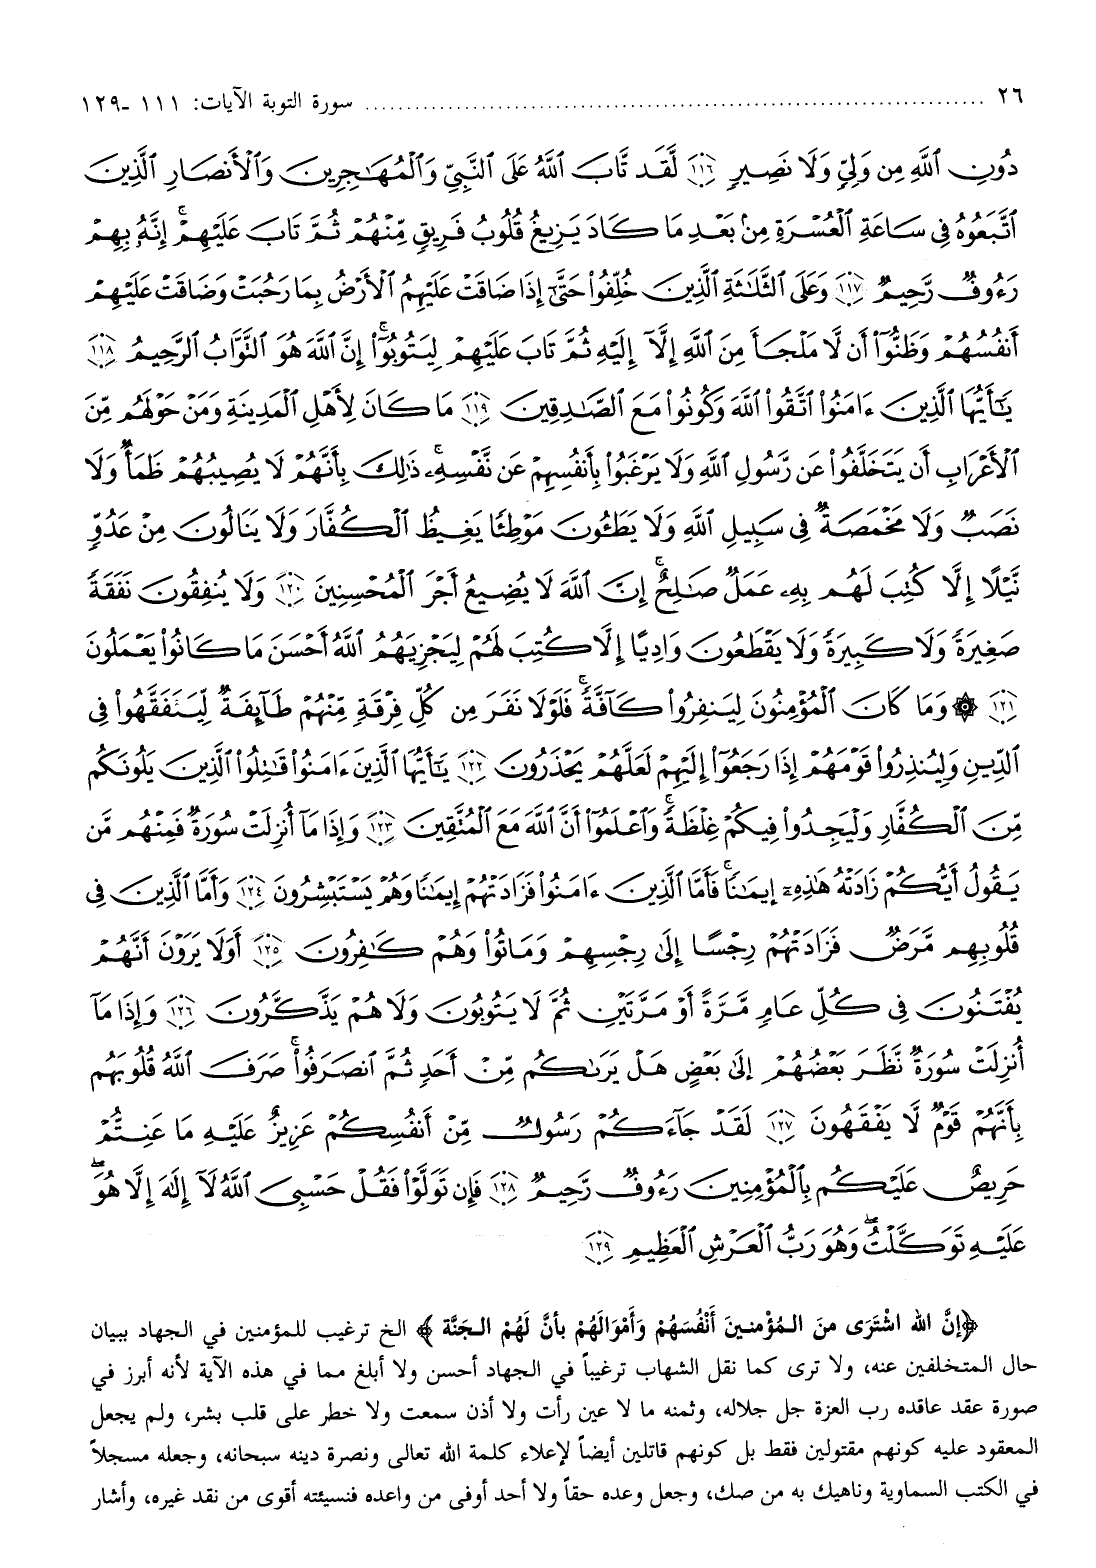 ٢٦ ........................................................................ سورة التوبة الآيات: ١١١ -١٢٩
دُونِ ٱللَّهِ مِن وَلِيٍّ وَلَا نَصِيرٍ ١١٦ لَّقَد تَّابَ ٱللَّهُ عَلَى ٱلنَّبِيِّ وَٱلْمُهَٰجِرِينَ وَٱلْأَنصَارِ ٱلَّذِينَ
ٱتَّبَعُوهُ فِي سَاعَةِ ٱلْعُسْرَةِ مِنۢ بَعْدِ مَا كَادَ يَزِيغُ قُلُوبُ فَرِيقٍ مِّنْهُمْ ثُمَّ تَابَ عَلَيْهِمْ ۚ إِنَّهُۥ بِهِمْ
رَءُوفٌ رَّحِيمٌ ١١٧ وَعَلَى ٱلثَّلَٰثَةِ ٱلَّذِينَ خُلِّفُوا۟ حَتَّىٰٓ إِذَا ضَاقَتْ عَلَيْهِمُ ٱلْأَرْضُ بِمَا رَحُبَتْ وَضَاقَتْ عَلَيْهِمْ
أَنفُسُهُمْ وَظَنُّوٓا۟ أَن لَّا مَلْجَأَ مِنَ ٱللَّهِ إِلَّآ إِلَيْهِ ثُمَّ تَابَ عَلَيْهِمْ لِيَتُوبُوٓا۟ ۚ إِنَّ ٱللَّهَ هُوَ ٱلتَّوَّابُ ٱلرَّحِيمُ ١١٨
يَٰٓأَيُّهَا ٱلَّذِينَ ءَامَنُوا۟ ٱتَّقُوا۟ ٱللَّهَ وَكُونُوا۟ مَعَ ٱلصَّٰدِقِينَ ١١٩ مَا كَانَ لِأَهْلِ ٱلْمَدِينَةِ وَمَنْ حَوْلَهُم مِّنَ
ٱلْأَعْرَابِ أَن يَتَخَلَّفُوا۟ عَن رَّسُولِ ٱللَّهِ وَلَا يَرْغَبُوا۟ بِأَنفُسِهِمْ عَن نَّفْسِهِۦ ۚ ذَٰلِكَ بِأَنَّهُمْ لَا يُصِيبُهُمْ ظَمَأٌ وَلَا
نَصَبٌ وَلَا مَخْمَصَةٌ فِي سَبِيلِ ٱللَّهِ وَلَا يَطَـُٔونَ مَوْطِئًا يَغِيظُ ٱلْكُفَّارَ وَلَا يَنَالُونَ مِنْ عَدُوٍّ
نَّيْلًا إِلَّا كُتِبَ لَهُم بِهِۦ عَمَلٌ صَٰلِحٌ ۚ إِنَّ ٱللَّهَ لَا يُضِيعُ أَجْرَ ٱلْمُحْسِنِينَ ١٢٠ وَلَا يُنفِقُونَ نَفَقَةً
صَغِيرَةً وَلَا كَبِيرَةً وَلَا يَقْطَعُونَ وَادِيًا إِلَّا كُتِبَ لَهُمْ لِيَجْزِيَهُمُ ٱللَّهُ أَحْسَنَ مَا كَانُوا۟ يَعْمَلُونَ
١٢١ ۞ وَمَا كَانَ ٱلْمُؤْمِنُونَ لِيَنفِرُوا۟ كَآفَّةً ۚ فَلَوْلَا نَفَرَ مِن كُلِّ فِرْقَةٍ مِّنْهُمْ طَآئِفَةٌ لِّيَتَفَقَّهُوا۟ فِي
ٱلدِّينِ وَلِيُنذِرُوا۟ قَوْمَهُمْ إِذَا رَجَعُوٓا۟ إِلَيْهِمْ لَعَلَّهُمْ يَحْذَرُونَ ١٢٢ يَٰٓأَيُّهَا ٱلَّذِينَ ءَامَنُوا۟ قَٰتِلُوا۟ ٱلَّذِينَ يَلُونَكُم
مِّنَ ٱلْكُفَّارِ وَلْيَجِدُوا۟ فِيكُمْ غِلْظَةً ۚ وَٱعْلَمُوٓا۟ أَنَّ ٱللَّهَ مَعَ ٱلْمُتَّقِينَ ١٢٣ وَإِذَا مَآ أُنزِلَتْ سُورَةٌ فَمِنْهُم مَّن
يَقُولُ أَيُّكُمْ زَادَتْهُ هَٰذِهِۦٓ إِيمَٰنًا ۚ فَأَمَّا ٱلَّذِينَ ءَامَنُوا۟ فَزَادَتْهُمْ إِيمَٰنًا وَهُمْ يَسْتَبْشِرُونَ ١٢٤ وَأَمَّا ٱلَّذِينَ فِي
قُلُوبِهِم مَّرَضٌ فَزَادَتْهُمْ رِجْسًا إِلَىٰ رِجْسِهِمْ وَمَاتُوا۟ وَهُمْ كَٰفِرُونَ ١٢٥ أَوَلَا يَرَوْنَ أَنَّهُمْ
يُفْتَنُونَ فِي كُلِّ عَامٍ مَّرَّةً أَوْ مَرَّتَيْنِ ثُمَّ لَا يَتُوبُونَ وَلَا هُمْ يَذَّكَّرُونَ ١٢٦ وَإِذَا مَآ
أُنزِلَتْ سُورَةٌ نَّظَرَ بَعْضُهُمْ إِلَىٰ بَعْضٍ هَلْ يَرَىٰكُم مِّنْ أَحَدٍ ثُمَّ ٱنصَرَفُوا۟ ۚ صَرَفَ ٱللَّهُ قُلُوبَهُم
بِأَنَّهُمْ قَوْمٌ لَّا يَفْقَهُونَ ١٢٧ لَقَدْ جَآءَكُمْ رَسُولٌ مِّنْ أَنفُسِكُمْ عَزِيزٌ عَلَيْهِ مَا عَنِتُّمْ
حَرِيصٌ عَلَيْكُم بِٱلْمُؤْمِنِينَ رَءُوفٌ رَّحِيمٌ ١٢٨ فَإِن تَوَلَّوْا۟ فَقُلْ حَسْبِيَ ٱللَّهُ لَآ إِلَٰهَ إِلَّا هُوَ ۖ
عَلَيْهِ تَوَكَّلْتُ ۖ وَهُوَ رَبُّ ٱلْعَرْشِ ٱلْعَظِيمِ ١٢٩
﴿إنَّ الله اشْتَرَى منَ الـمُؤْمنـينَ أَنْفُسَهُمْ وَأَمْوَالَهُمْ بأنَّ لَهُمْ الـجَنَّة﴾ الخ ترغيب للمؤمنين في الجهاد ببيان
حال المتخلفين عنه، ولا ترى كما نقل الشهاب ترغيباً في الجهاد أحسن ولا أبلغ مما في هذه الآية لأنه أبرز في
صورة عقد عاقده رب العزة جل جلاله، وثمنه ما لا عين رأت ولا أذن سمعت ولا خطر على قلب بشر، ولم يجعل
المعقود عليه كونهم مقتولين فقط بل كونهم قاتلين أيضاً لإعلاء كلمة الله تعالى ونصرة دينه سبحانه، وجعله مسجلاً
في الكتب السماوية وناهيك به من صك، وجعل وعده حقاً ولا أحد أوفى من واعده فنسيئته أقوى من نقد غيره، وأشار